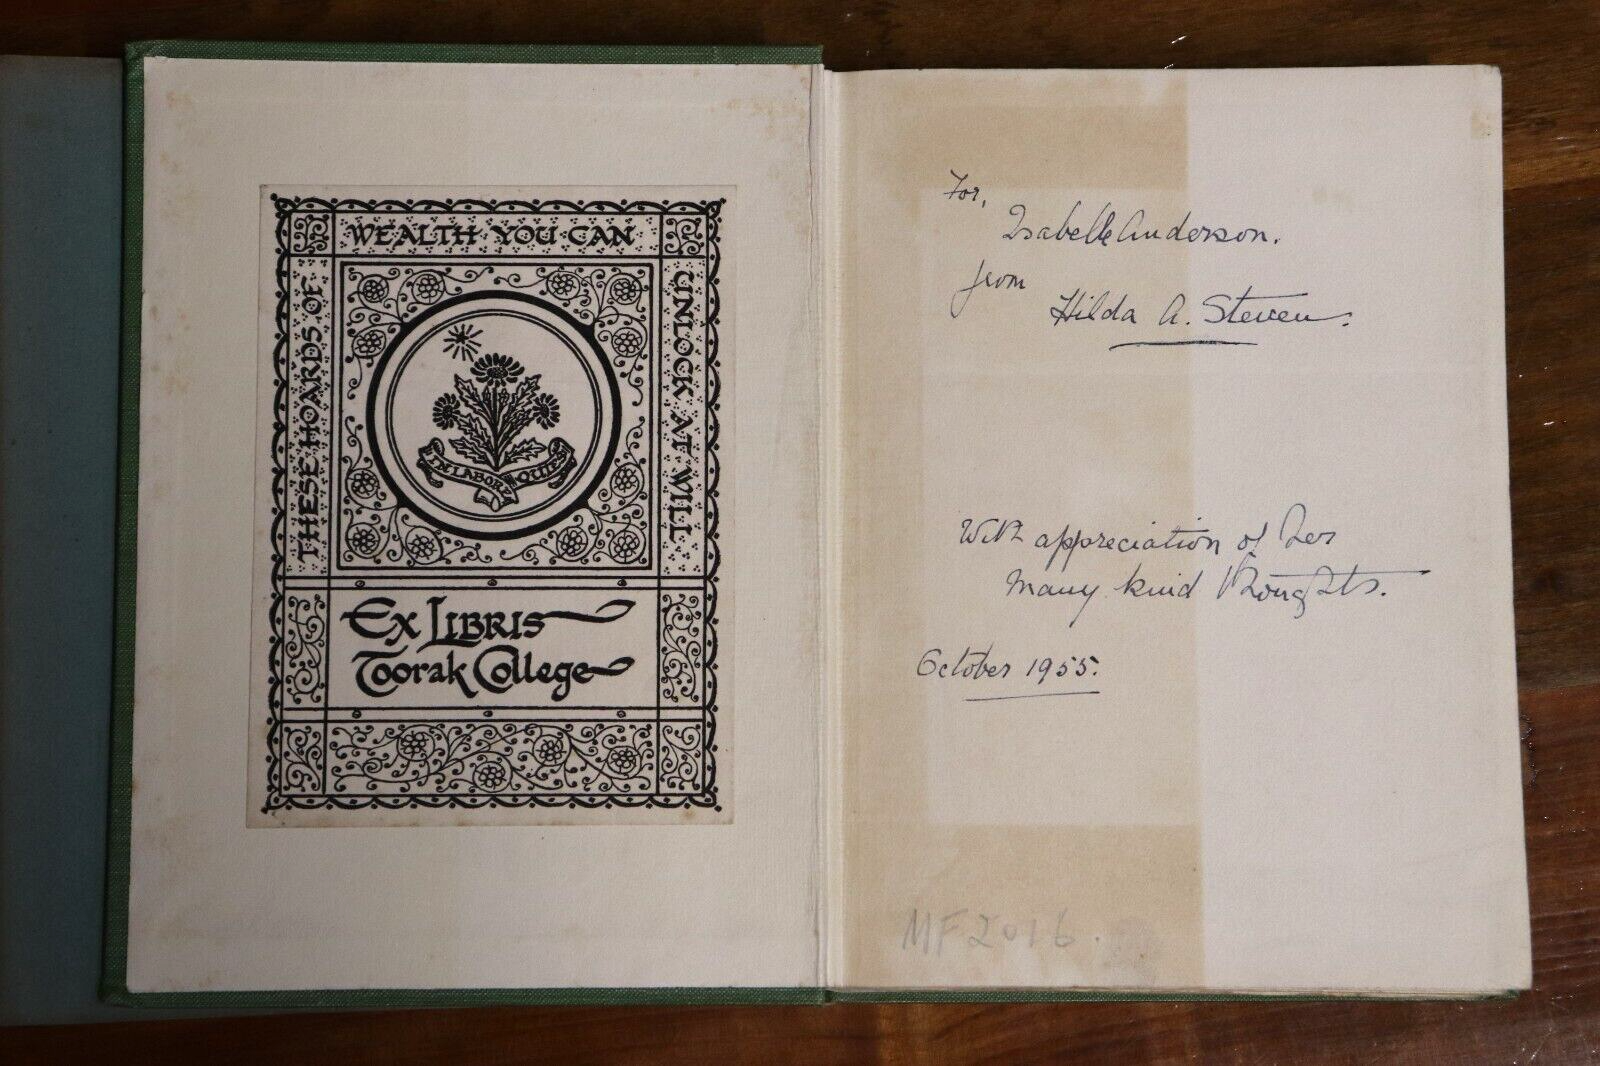 THESE HOARDS OF
WEALTH YOU CAN
UNLOCK AT WILL
IN LABORE QUIES
EX LIBRIS
Toorak College
For,
Isabelle Anderson.
from
Hilda A. Steven.
With appreciation of her
many kind thoughts.
October 1955.
MF2016.